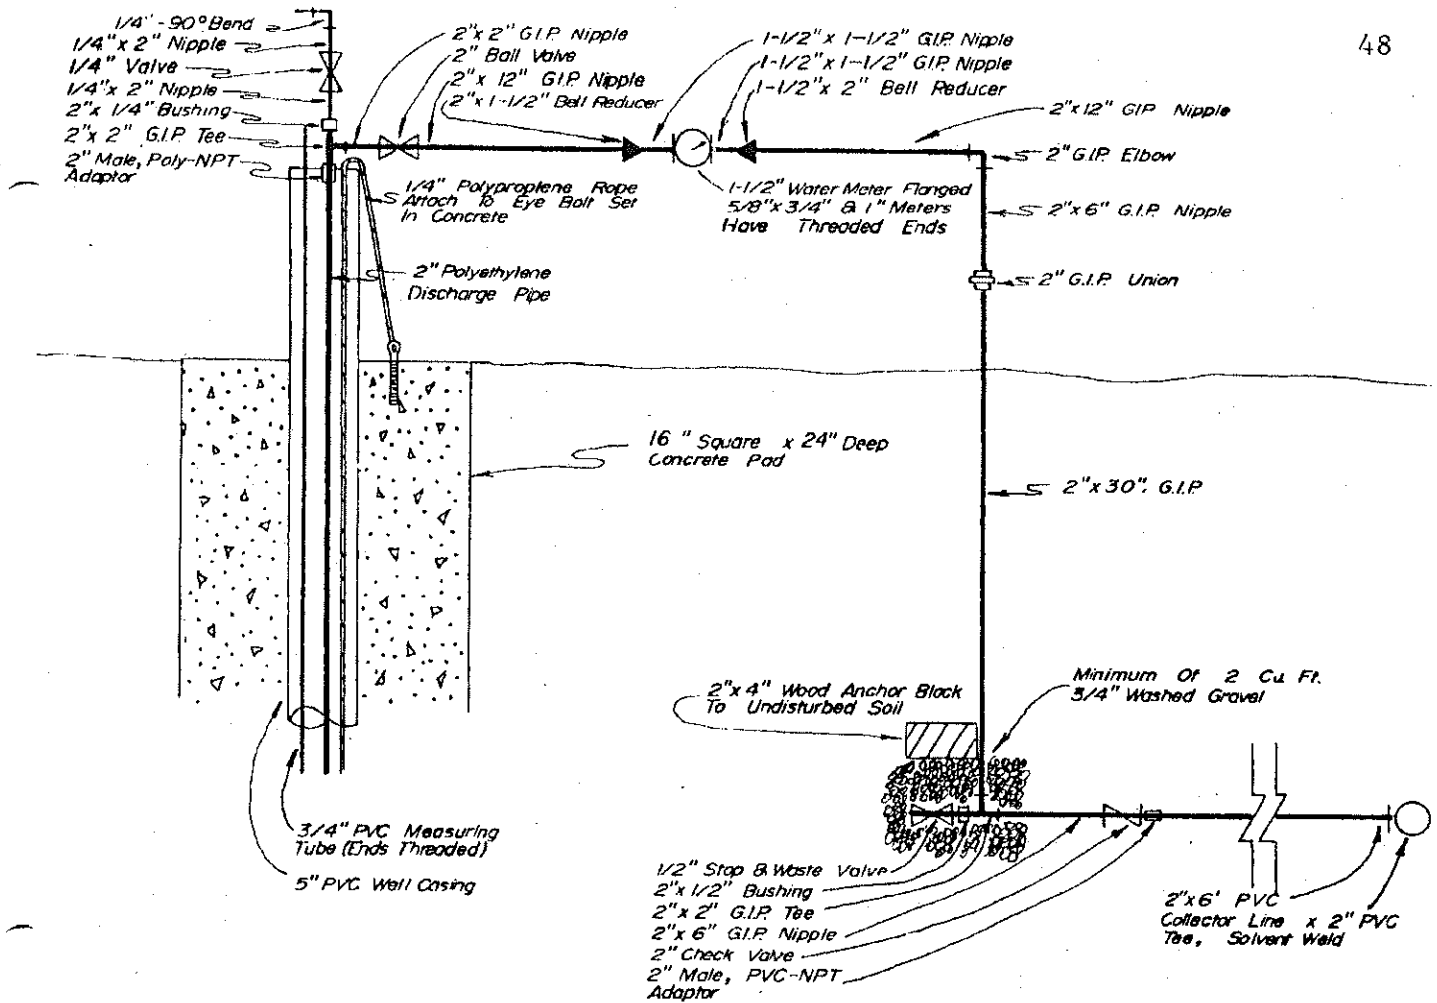 48
1/4" - 90° Bend
1/4" x 2" Nipple
1/4" Valve
1/4" x 2" Nipple
2" x 1/4" Bushing
2" x 2" G.I.P. Tee
2" Male, Poly-NPT
Adaptor
2" x 2" G.I.P. Nipple
2" Ball Valve
2" x 12" G.I.P. Nipple
2" x 1-1/2" Bell Reducer
1-1/2" x 1-1/2" G.I.P. Nipple
1-1/2" x 1-1/2" G.I.P. Nipple
1-1/2" x 2" Bell Reducer
2" x 12" G.I.P. Nipple
2" G.I.P. Elbow
1/4" Polyproplene Rope
Attach To Eye Bolt Set
In Concrete
1-1/2" Water Meter Flanged
5/8" x 3/4" & 1" Meters
Have Threaded Ends
2" x 6" G.I.P. Nipple
2" Polyethylene
Discharge Pipe
2" G.I.P. Union
16" Square x 24" Deep
Concrete Pad
2" x 30". G.I.P.
2" x 4" Wood Anchor Block
To Undisturbed Soil
Minimum Of 2 Cu Ft.
3/4" Washed Gravel
3/4" PVC Measuring
Tube (Ends Threaded)
5" PVC Well Casing
1/2" Stop & Waste Valve
2" x 1/2" Bushing
2" x 2" G.I.P. Tee
2" x 6" G.I.P. Nipple
2" Check Valve
2" Male, PVC-NPT
Adaptor
2" x 6' PVC
Collector Line x 2" PVC
Tee, Solvent Weld